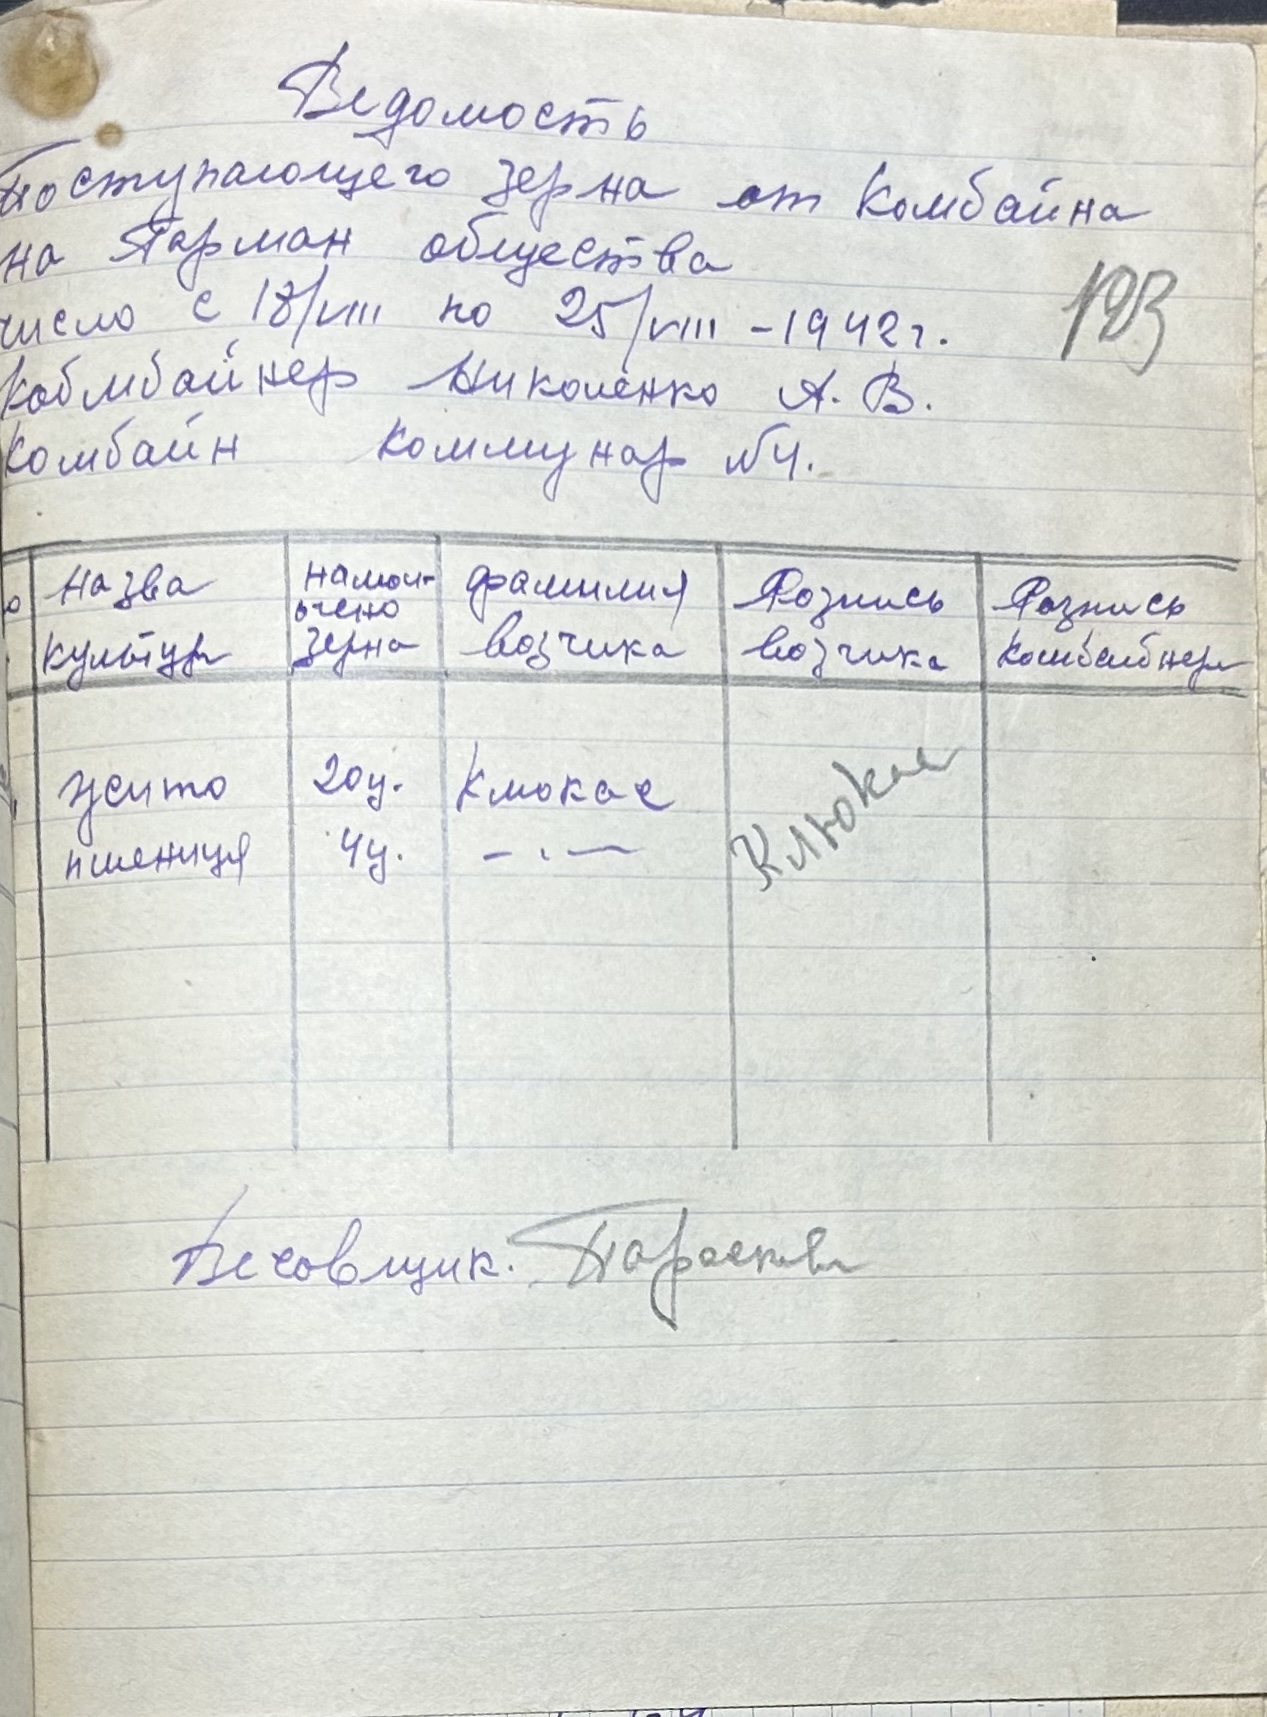 Ведомость
Поступающего зерна от Комбайна
на Гарман общества
число с 18/VIII по 25/VIII - 1942 г.
123
Кобмбайнер Николенко А. В.
Комбайн Коммунар №4.
назва культур | намол-ьчено зерна | фамилия возчика | Розпись возчика | Розпись Комбайнера
жито | 20 ц. | Клюкае | Клюкае
пшениця | 4 ц. | — . —
Весовщик.